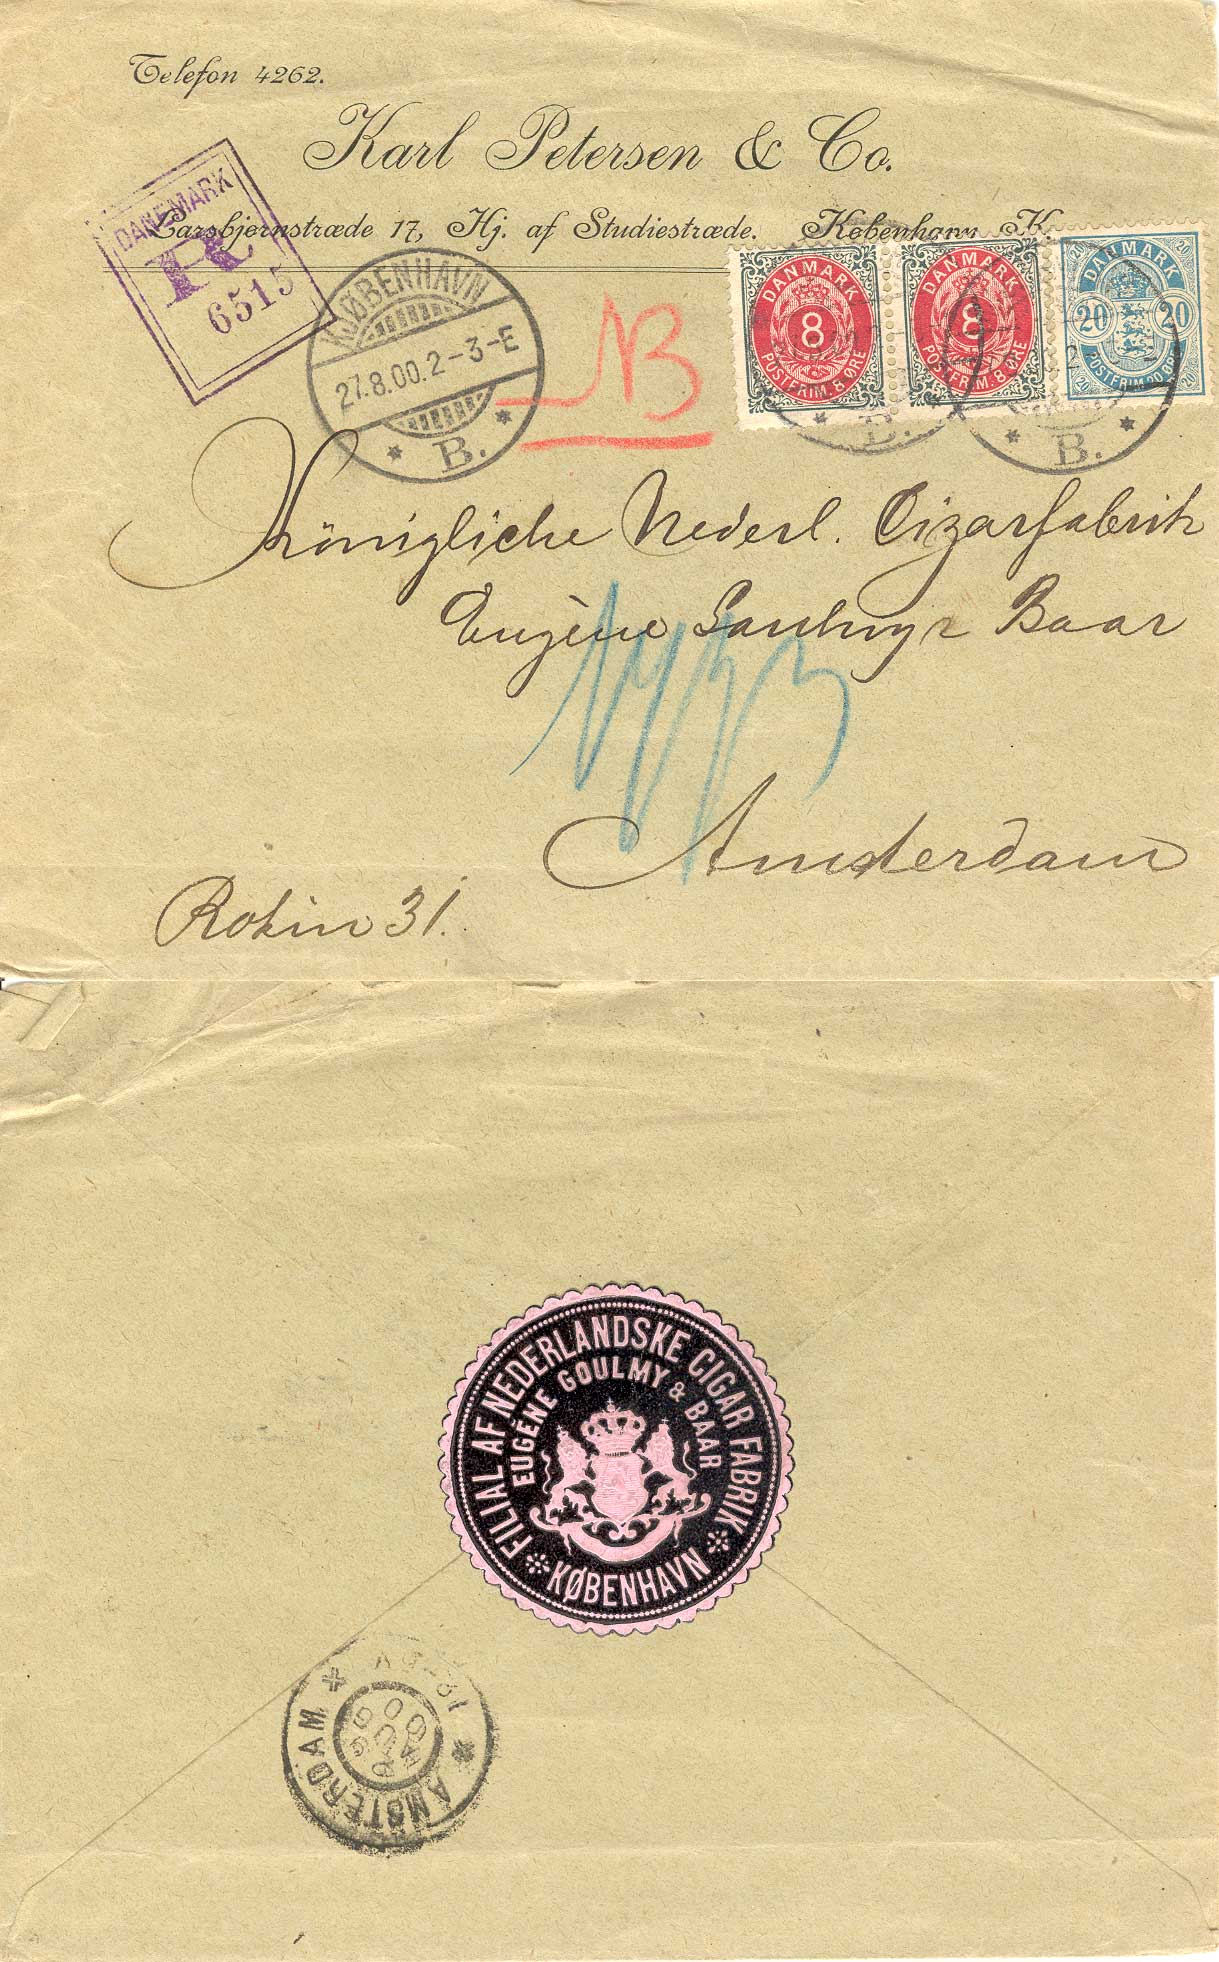 Telefon 4262.
Karl Petersen & Co.
Larsbjernstræde 17, Hj. af Studiestræde. København K.
DANEMARK
R
6515
KJØBENHAVN
27.8.00.2-3-E
B.
NB
DANMARK
8
POSTFRIM. 8 ØRE
DANMARK
8
POSTFRIM. 8 ØRE
DANMARK
20 20
POSTFRIM. 20 ØRE
20 20 20 20
B.
B.
Königliche Nederl. Cigarfabrik
Eugène Goulmy & Baar
Amsterdam
Rokin 31.
FILIAL AF NEDERLANDSKE CIGAR FABRIK
EUGÉNE GOULMY & BAAR
KØBENHAVN
AMSTERDAM